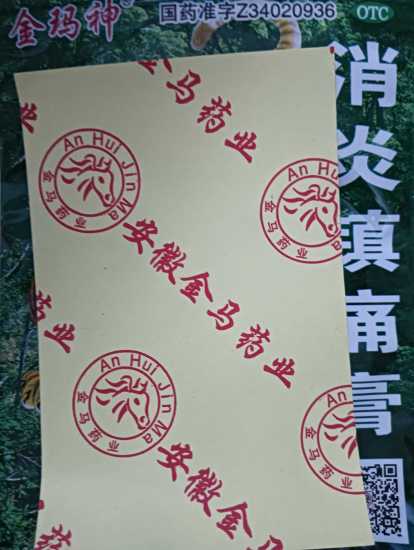 金玛神
国药准字Z34020936
OTC
消炎镇痛膏
金马药业
An Hui Jin Ma
金马药业
An Hu
金马药业
安徽金马药业
药业
An Hui Jin Ma
金马药业
An
金马药业
安徽金马
药业